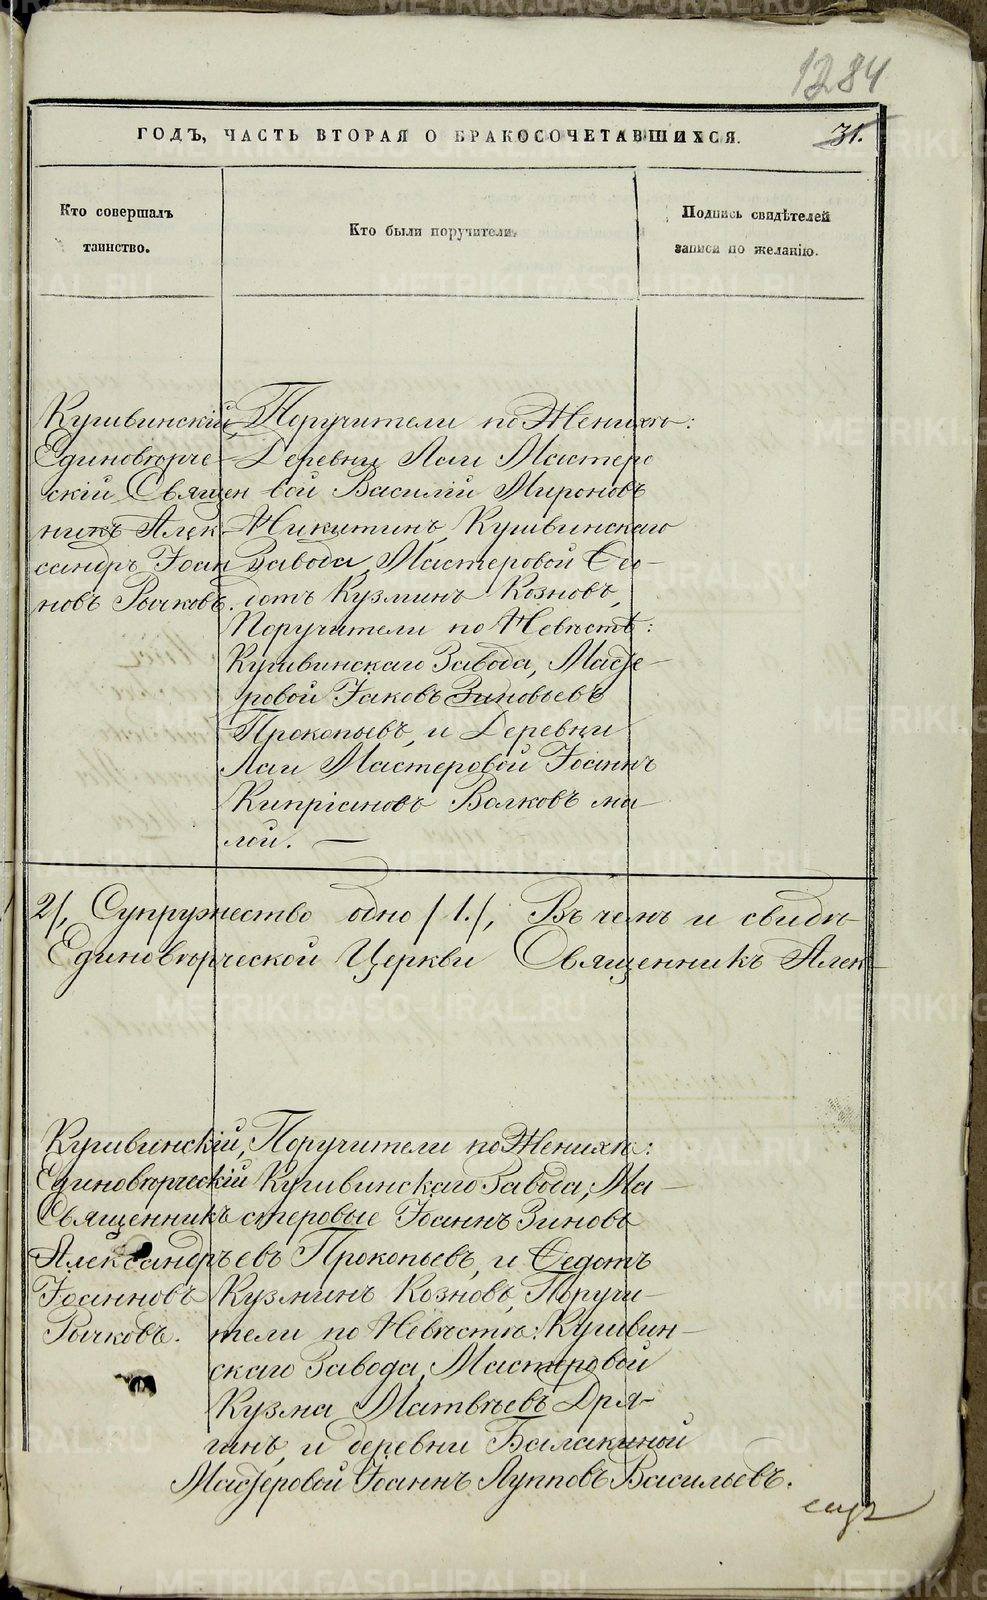 1284
ГОДЪ, ЧАСТЬ ВТОРАЯ О БРАКОСОЧЕТАВШИХСЯ.
31.
Кто совершалъ
таинство.
Кто были поручители.
Подпись свидѣтелей
записи по желанію.
Кушвинскій
Единовѣрче-
скій Священ
никъ Алек-
сандръ Іоан
новъ Рычковъ.
Поручители по Женихѣ:
Деревни Лаи Мастеро
вой Василій Мироновъ
Никитинъ, Кушвинскаго
Завода, Мастеровой Ѳео-
дотъ Кузминъ Козновъ,
Поручители по Невѣстѣ:
Кушвинскаго Завода, Масте-
ровой Іаковъ Зиновьевъ
Прокопьевъ, и Деревни
Лаи Мастеровой Іоаннъ
Кипріановъ Волковъ ма-
лой. —
2/, Супружество одно /1./, Въ чемъ и свидѣ-
Единовѣрческой Церкви Священникъ Алек-
Кушвинскій,
Единовѣрческій
Священникъ
Александръ
Іоанновъ
Рычковъ.
Поручители по Женихѣ:
Кушвинскаго Завода, Ма-
стеровые Іоаннъ Зиновь
евъ Прокопьевъ, и Ѳедотъ
Кузминъ Козновъ, Поручи-
тели по Невѣстѣ: Кушвин-
скаго Завода, Мастеровой
Кузма Матвѣевъ Дря-
гинъ, и деревни Балакиной
Мастеровой Іоаннъ Лупповъ Васильевъ.
METRIKI.GASO-URAL.RU